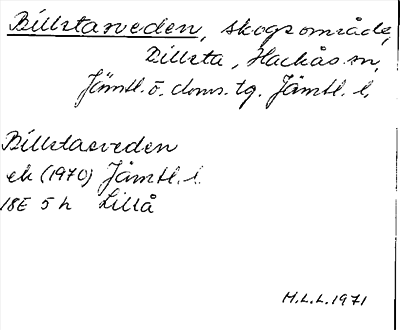 Billstasveden, skogsområde,
Billsta, Hackås sn,
Jämtl. ö. doms. tg. Jämtl. l.
Billstasveden
ek (1970) Jämtl. l.
18E 5h Lillå
H.L.L. 1971